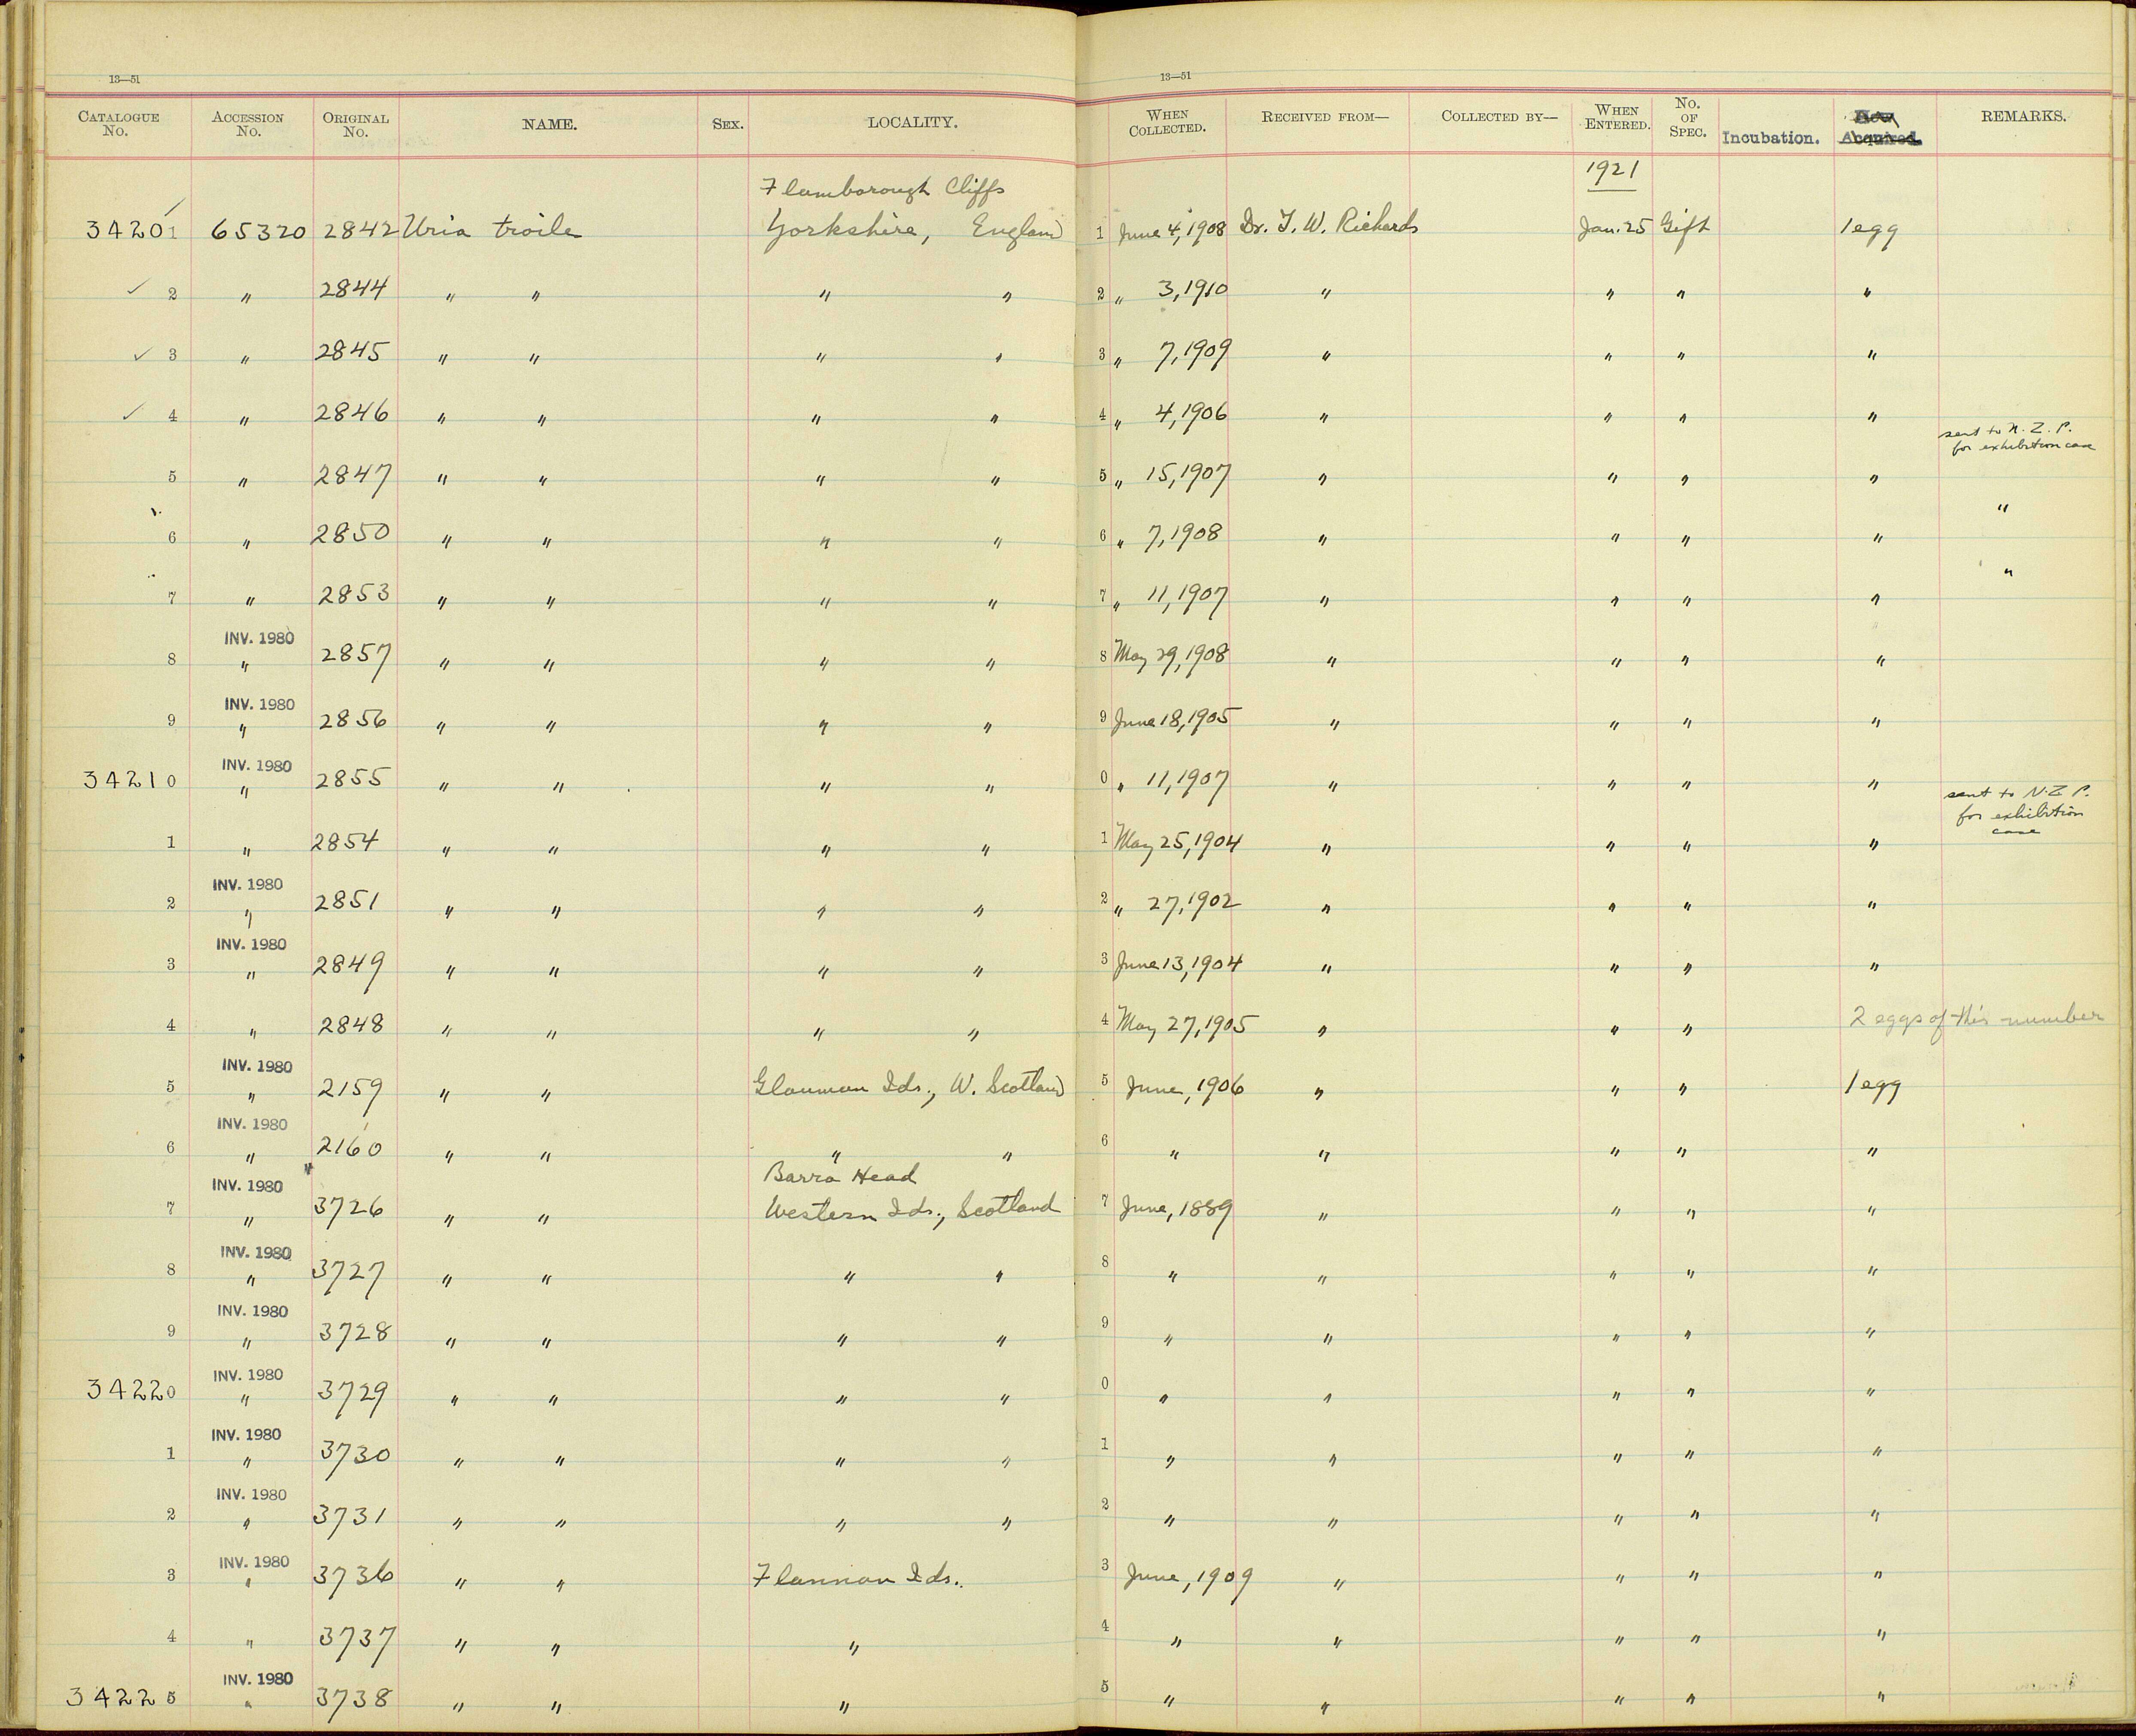 13—51 13—51
CATALOGUE No. ACCESSION No. ORIGINAL No. NAME. SEX. LOCALITY. WHEN COLLECTED. RECEIVED FROM— COLLECTED BY— WHEN ENTERED. No. OF SPEC. Incubation. How Acquired. REMARKS.
1921
Flamborough Cliffs
34201 65320 2842 Uria troile Yorkshire, England 1 June 4, 1908 Dr. T. W. Richards Jan. 25 Gift 1 egg
2 " 2844 " " " " 2 " 3, 1910 " " " "
3 " 2845 " " " " 3 " 7, 1909 " " " "
4 " 2846 " " " " 4 " 4, 1906 " " " "
sent to N. Z. P.
for exhibition case
5 " 2847 " " " " 5 " 15, 1907 " " " "
"
6 " 2850 " " " " 6 " 7, 1908 " " " "
"
7 " 2853 " " " " 7 " 11, 1907 " " " "
INV. 1980
8 " 2857 " " " " 8 May 29, 1908 " " " "
INV. 1980
9 " 2856 " " " " 9 June 18, 1905 " " " "
INV. 1980
34210 " 2855 " " " " 0 " 11, 1907 " " " "
sent to N. Z. P.
for exhibition
case
1 " 2854 " " " " 1 May 25, 1904 " " " "
INV. 1980
2 " 2851 " " " " 2 " 27, 1902 " " " "
INV. 1980
3 " 2849 " " " " 3 June 13, 1904 " " " "
4 " 2848 " " " " 4 May 27, 1905 " " " 2 eggs of this number
INV. 1980
5 " 2159 " " Glouman Ids., W. Scotland 5 June, 1906 " " " 1 egg
INV. 1980
6 " 2160 " " " " 6 " " " " "
Barra Head
INV. 1980
7 " 3726 " " Western Ids., Scotland 7 June, 1889 " " " "
INV. 1980
8 " 3727 " " " " 8 " " " " "
INV. 1980
9 " 3728 " " " " 9 " " " " "
INV. 1980
34220 " 3729 " " " " 0 " " " " "
INV. 1980
1 " 3730 " " " " 1 " " " " "
INV. 1980
2 " 3731 " " " " 2 " " " " "
INV. 1980
3 " 3736 " " Flannan Ids. 3 June, 1909 " " " "
4 " 3737 " " " 4 " " " " "
INV. 1980
34225 " 3738 " " " 5 " " " " "